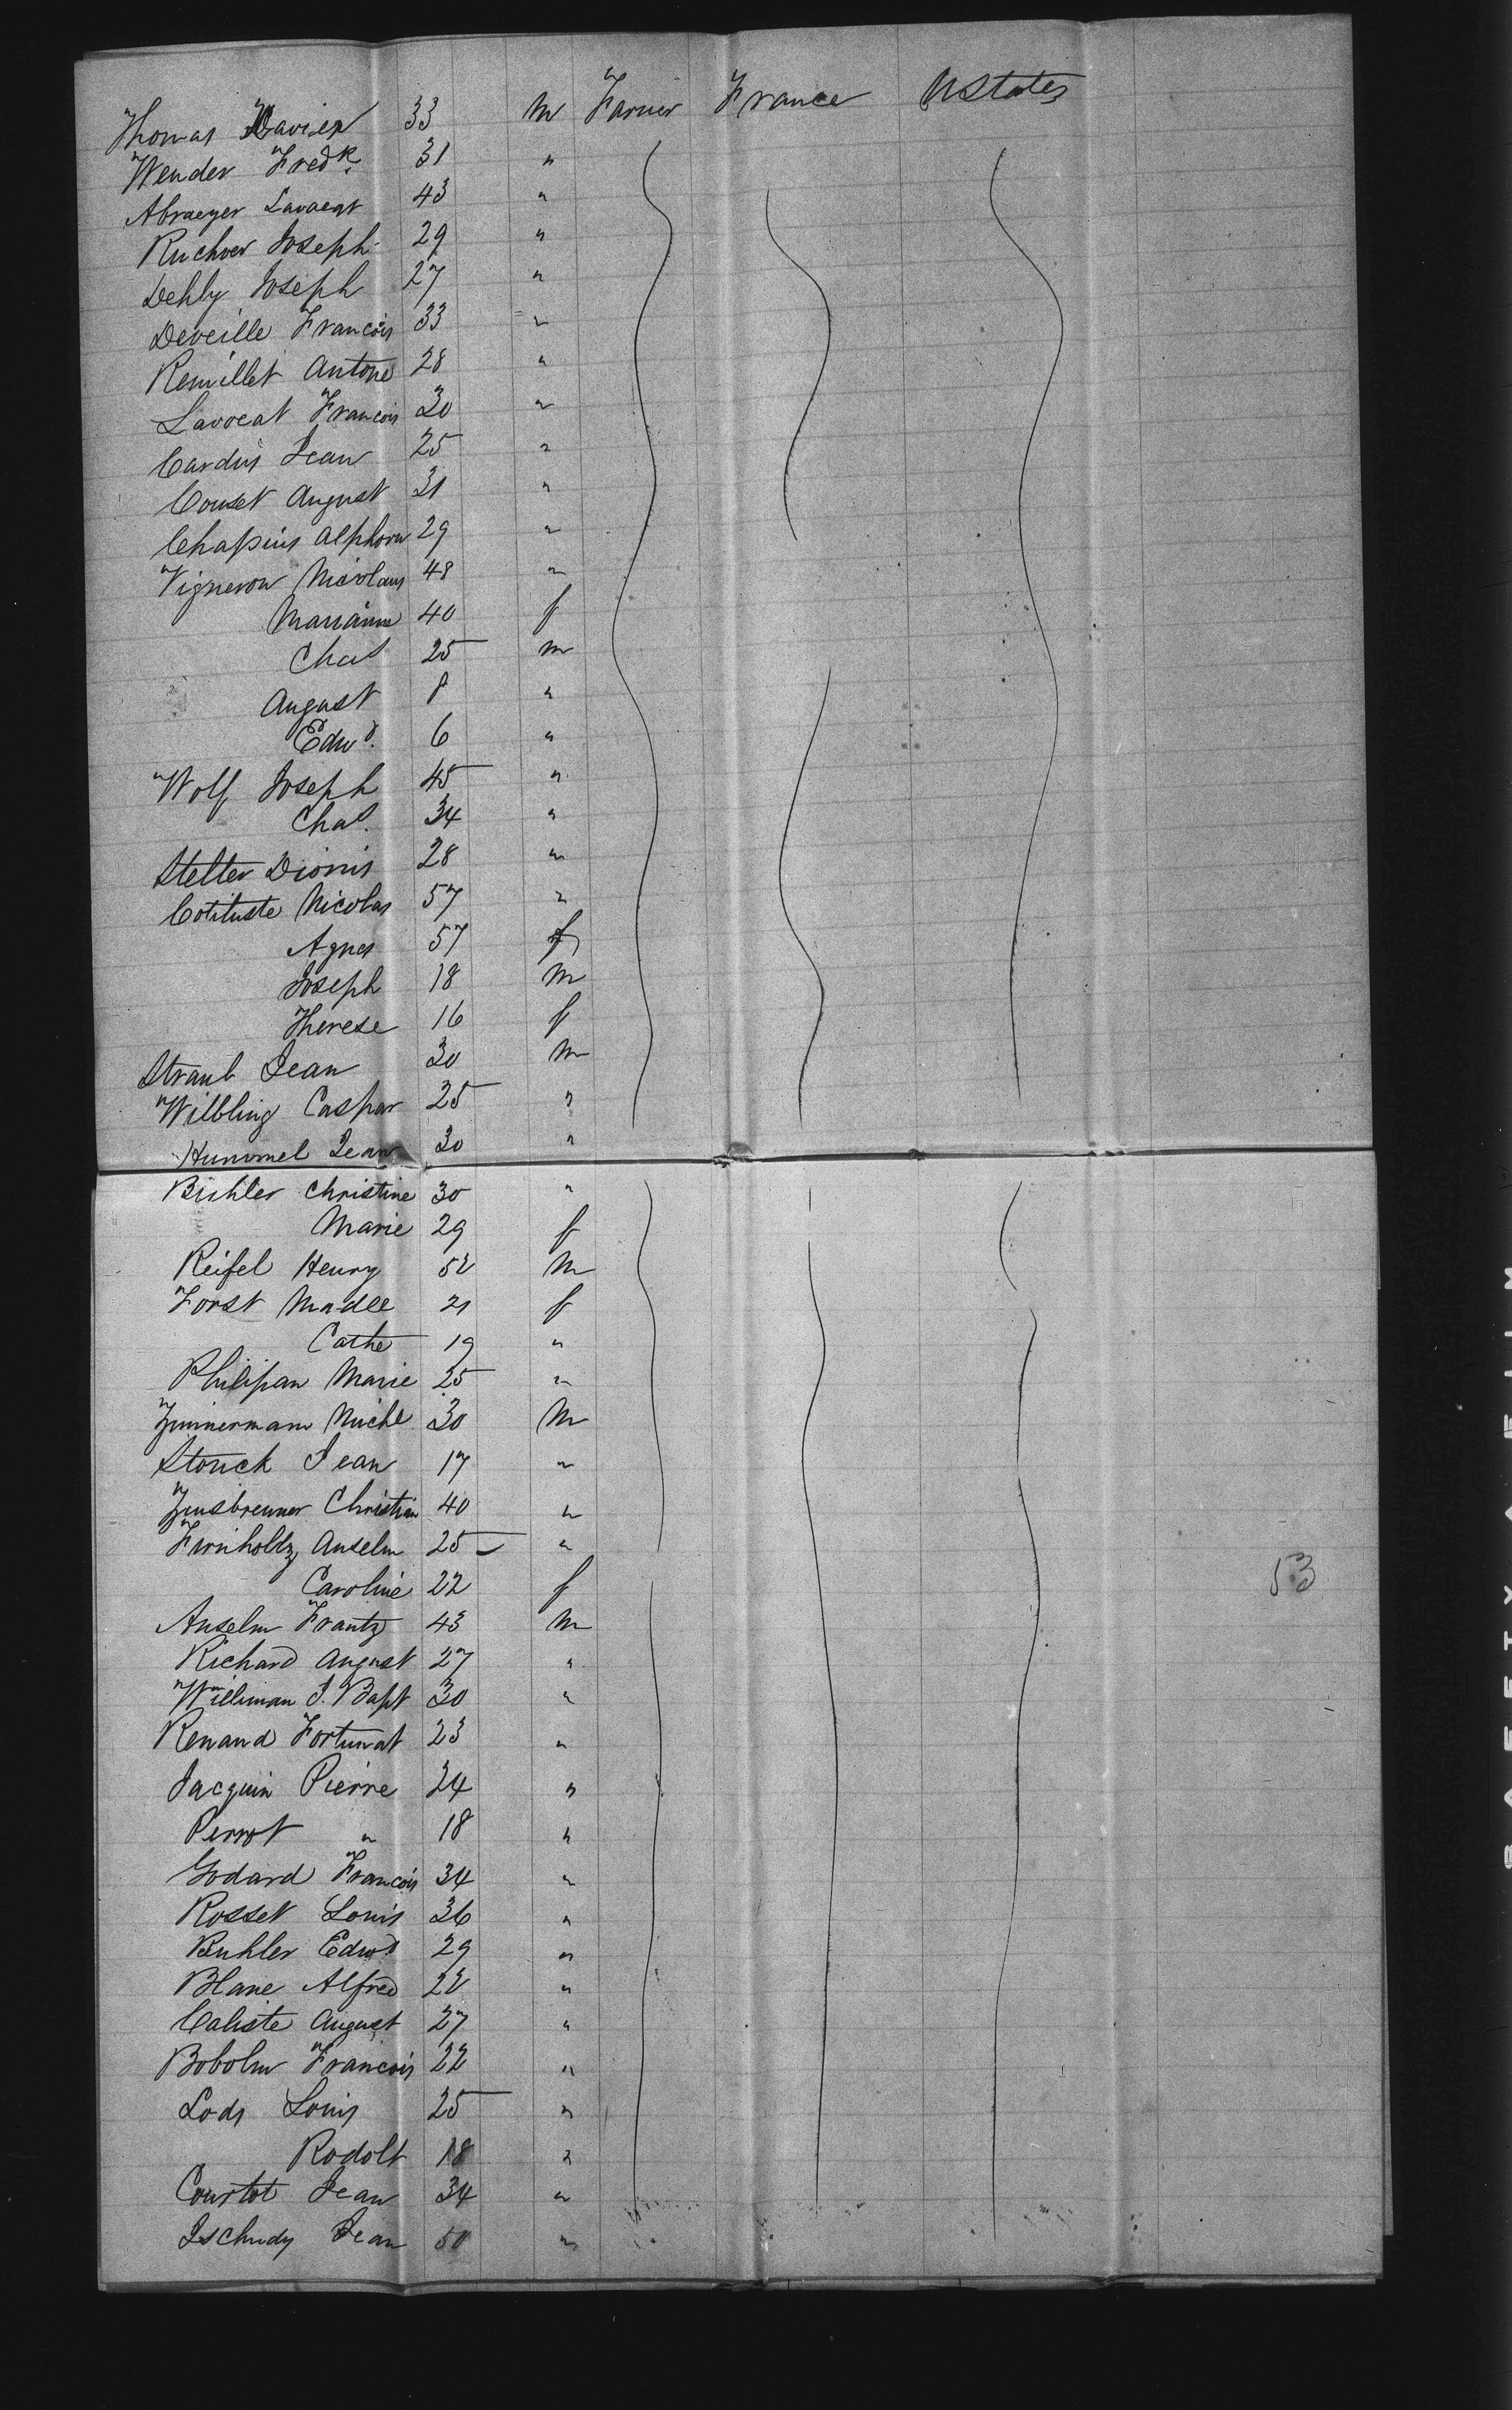 Thomas Xavier 33 m Farmer France UStates
Wender Fredk. 31 "
Abraeyer Lavocat 43 "
Ruchver Joseph 29 "
Dehly Joseph 27 "
Deveille Francois 33 "
Remillet Antone 28 "
Lavocat Francois 30 "
Cardus Jean 25 "
Couset August 31 "
Chapius Alphons 29 "
Vigneron Nicolaus 48 "
Marianne 40 f
Chas 25 m
August 8 "
Edwd. 6 "
Wolf Joseph 45 "
Chas. 34 "
Steller Dionis 28 "
Cotituste Nicolas 57 "
Agnes 57 f
Joseph 18 m
Therese 16 f
Straub Jean 30 m
Wilbling Caspar 25 "
Hummel Jean 30 "
Bichler Christine 30 "
Marie 29 f
Reifel Henry 52 m
Forst Madle 21 f
Cathe 19 "
Philipan Marie 25 "
Zimmermann Michl 30 m
Storck Jean 17 "
Zinsbrenner Christian 40 "
Firnholtz Anselm 25 "
Caroline 22 f 53
Anselm Frantz 43 m
Richard August 27 "
Williman J. Bapt 30 "
Renand Fortunat 23 "
Jacquin Pierre 24 "
Perrot " 18 "
Godard Francois 34 "
Rosset Louis 36 "
Buhler Edwd 29 "
Blane Alfred 22 "
Caliste August 27 "
Bobolm Francois 22 "
Lods Louis 25 "
Rodolt 18 "
Courtot Jean 34 "
Tschudy Jean 50 "